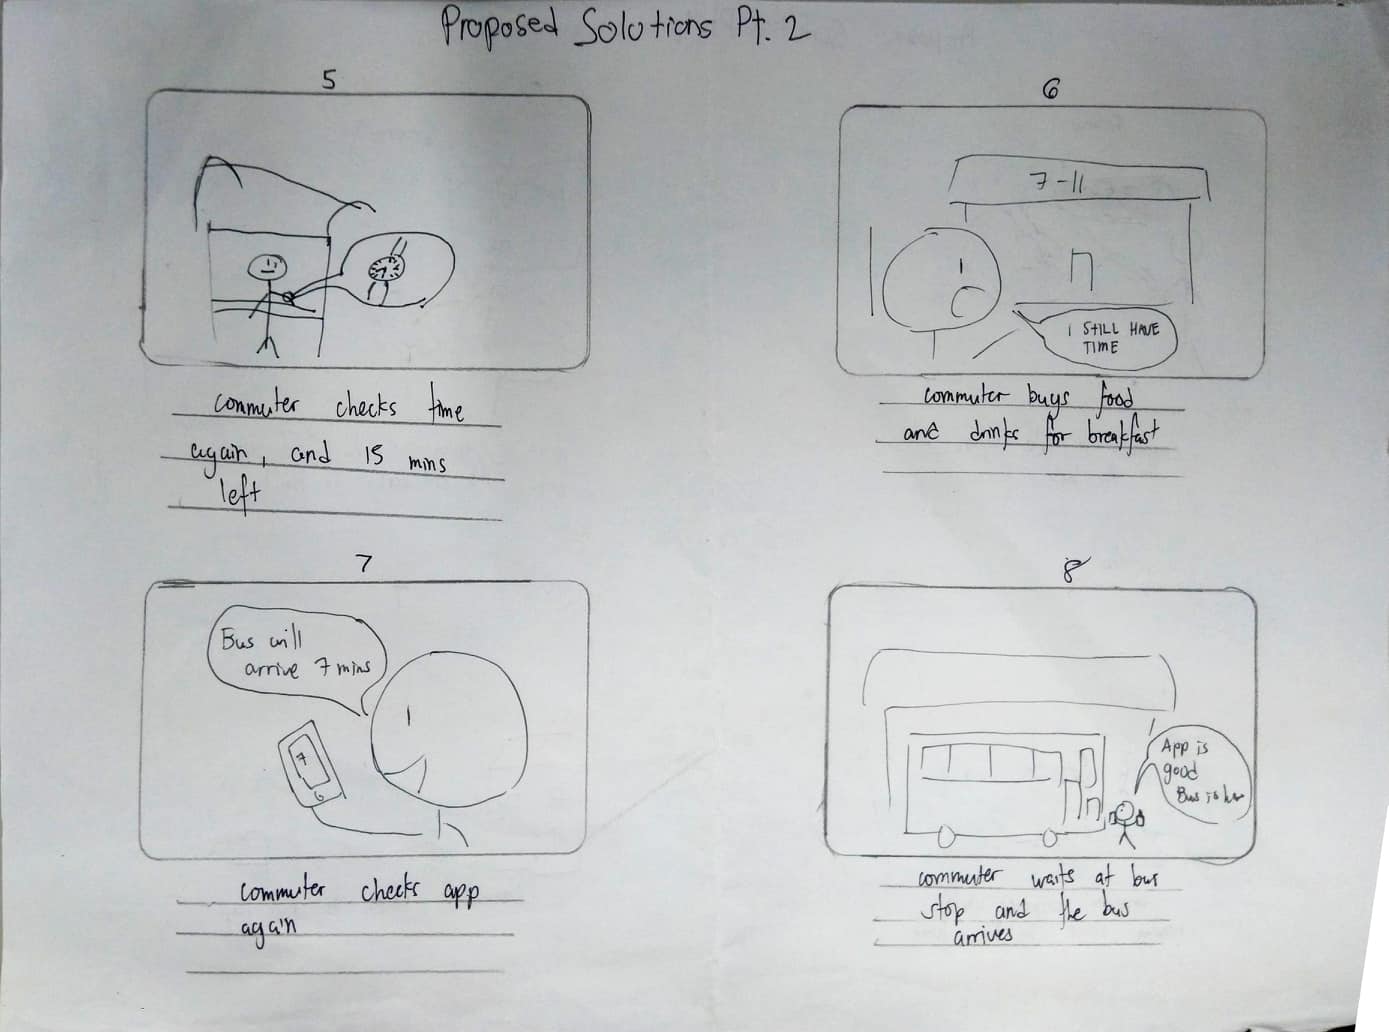 Proposed Solutions Pt. 2
5
commuter checks time
again, and 15 mins
left
6
7-11
I STILL HAVE
TIME
commuter buys food
and drinks for breakfast
7
Bus will
arrive 7 mins
7
commuter checks app
again
8
App is
good
Bus is
commuter waits at bus
stop and the bus
arrives